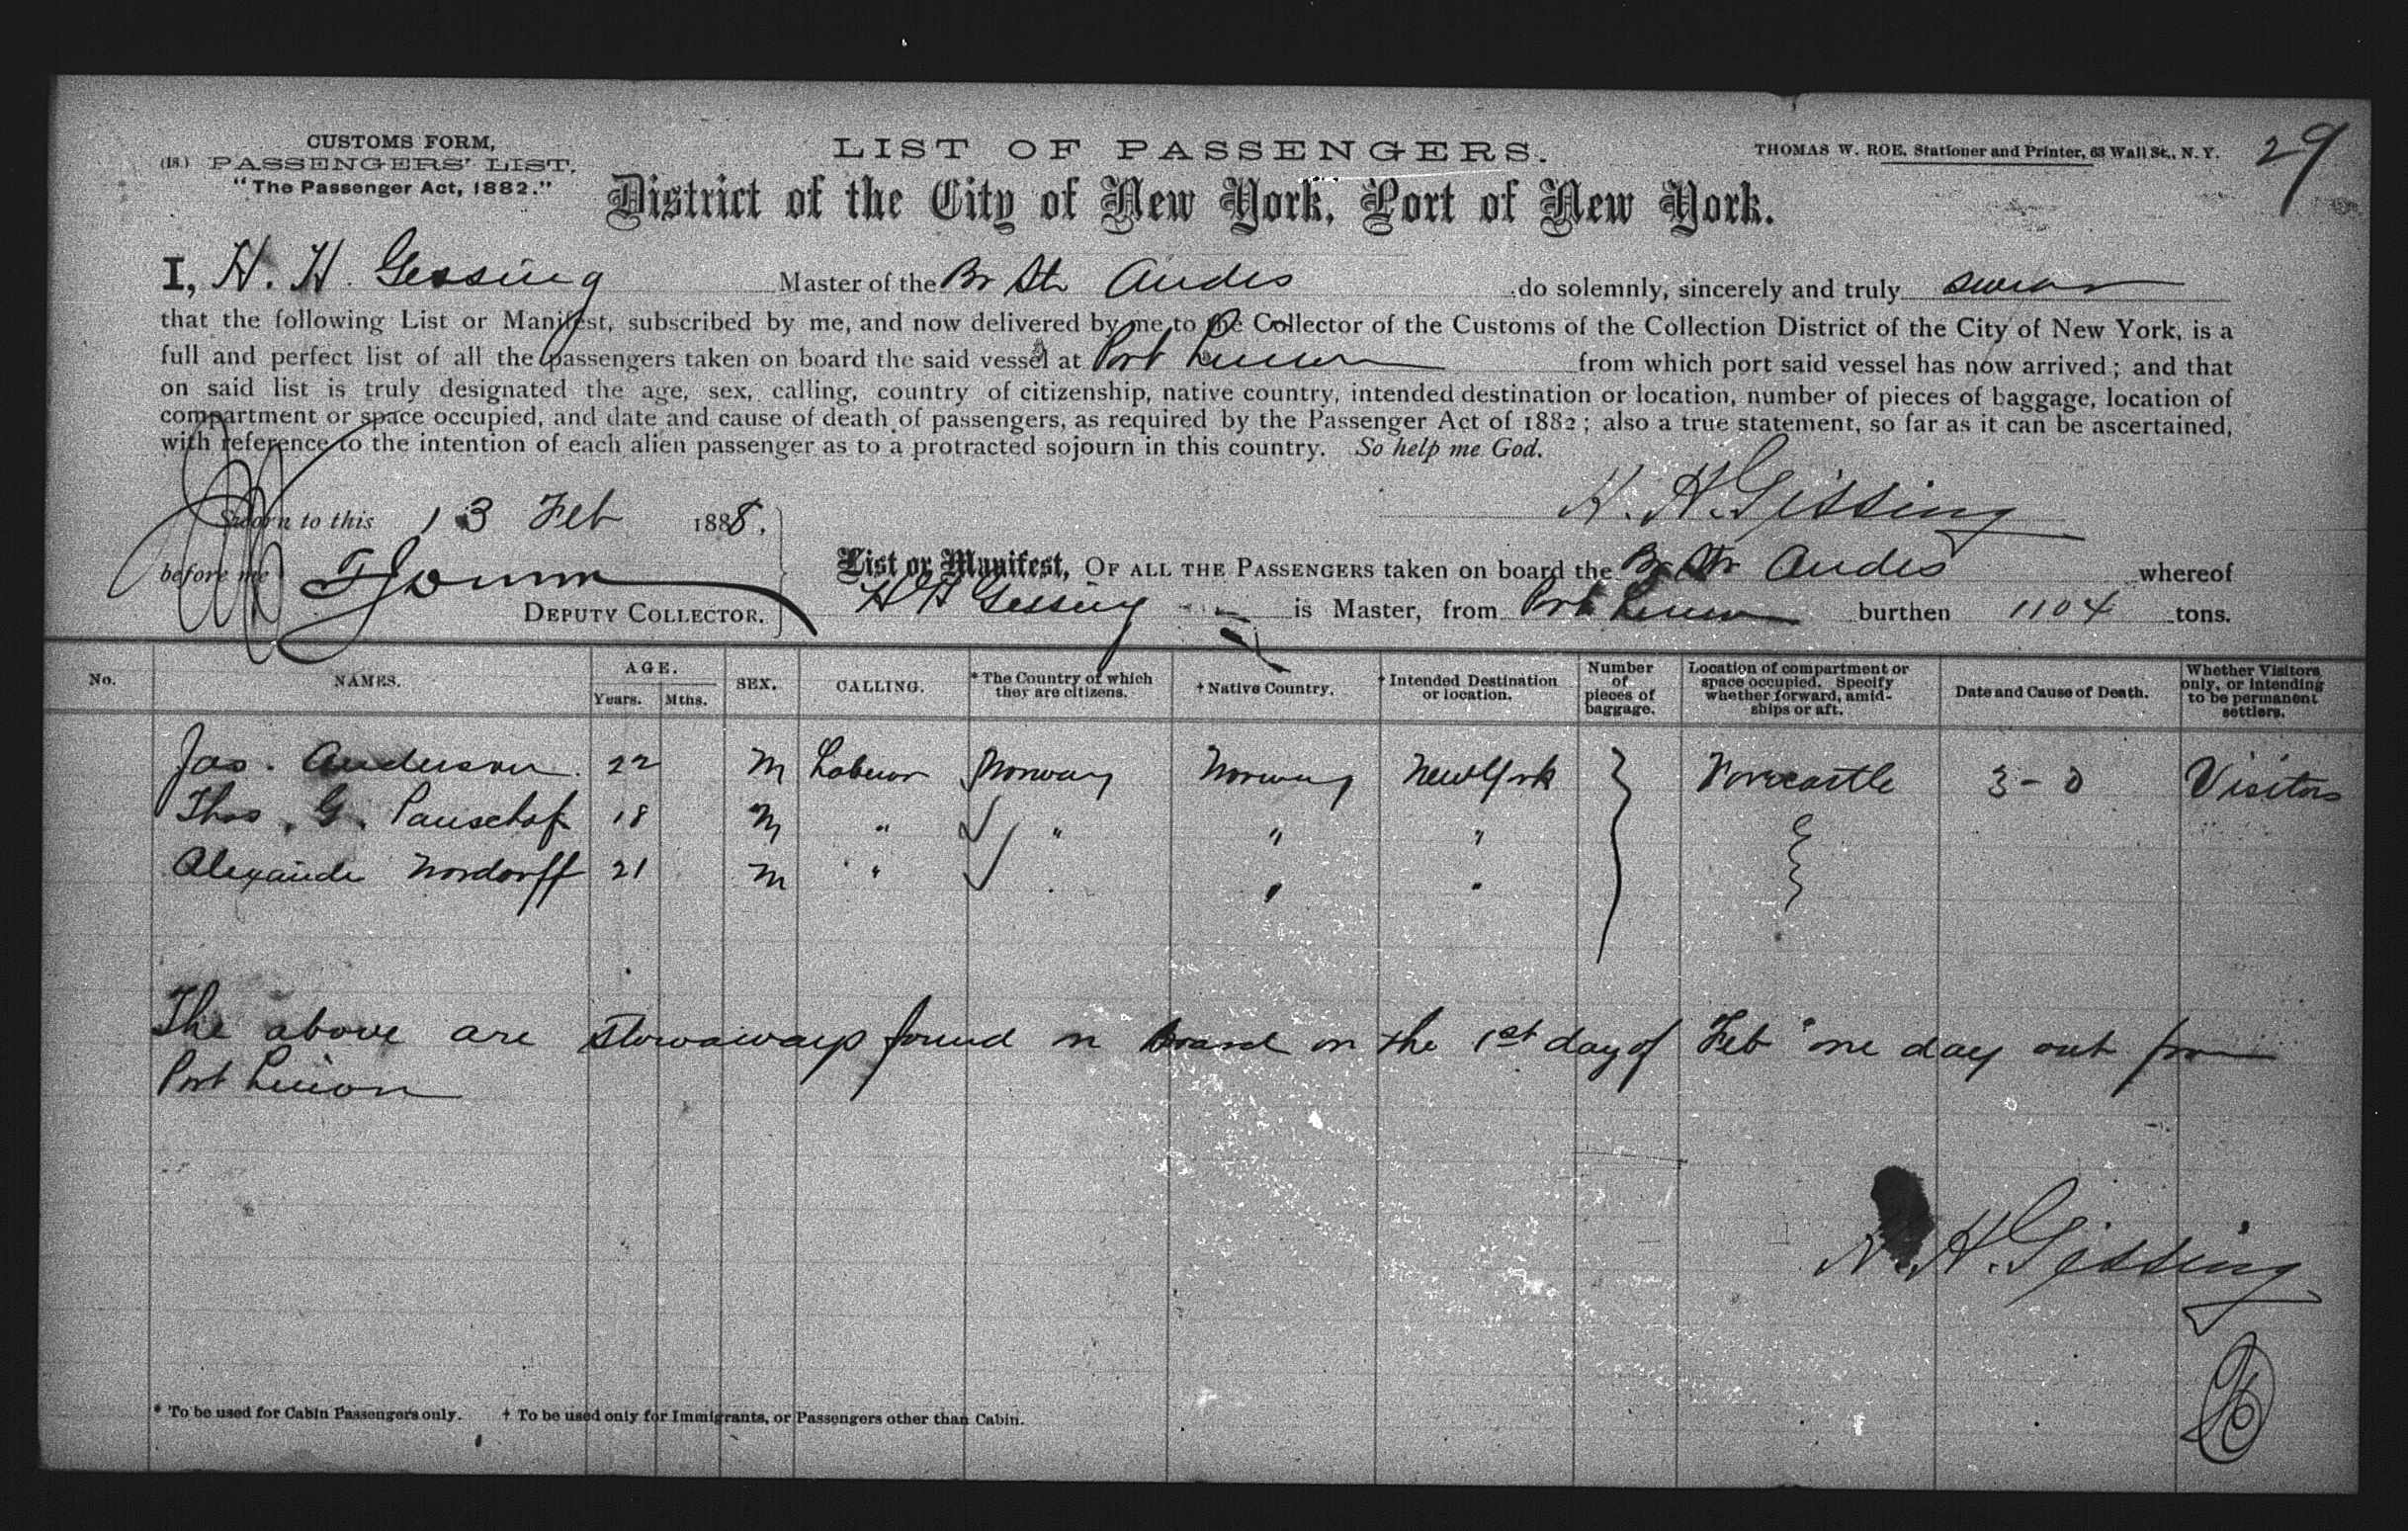 CUSTOMS FORM,
(18.) PASSENGERS' LIST.
"The Passenger Act, 1882."
LIST OF PASSENGERS.
THOMAS W. ROE, Stationer and Printer, 63 Wall St., N. Y.
29
District of the City of New York, Port of New York.
I, H. H. Gessing Master of the Br Str Andes do solemnly, sincerely and truly swear
that the following List or Manifest, subscribed by me, and now delivered by me to the Collector of the Customs of the Collection District of the City of New York, is a
full and perfect list of all the passengers taken on board the said vessel at Port Limon from which port said vessel has now arrived; and that
on said list is truly designated the age, sex, calling, country of citizenship, native country, intended destination or location, number of pieces of baggage, location of
compartment or space occupied, and date and cause of death of passengers, as required by the Passenger Act of 1882; also a true statement, so far as it can be ascertained,
with reference to the intention of each alien passenger as to a protracted sojourn in this country. So help me God.
H. H. Gissing
Sworn to this 13 Feb 1888.
before me
DEPUTY COLLECTOR.
List or Manifest, OF ALL THE PASSENGERS taken on board the Br Str Andes whereof
H H Gessing is Master, from Port Limon burthen 1104 tons.
No. NAMES. AGE. Years. Mths. SEX. CALLING. * The Country of which they are citizens. † Native Country. † Intended Destination or location. Number of pieces of baggage. Location of compartment or space occupied. Specify whether forward, amidships or aft. Date and Cause of Death. Whether Visitors only, or intending to be permanent settlers.
Jas. Anderson 22 M Labuor Norway Norway New York Forecastle 3 - 0 Visitors
Thos. G. Pauschof 18 M " " " "
Alexande Nordorff 21 M " " " "
The above are stowaways found on board on the 1st day of Feb one day out from
Port Limon
H. H. Gissing
* To be used for Cabin Passengers only. † To be used only for Immigrants, or Passengers other than Cabin.